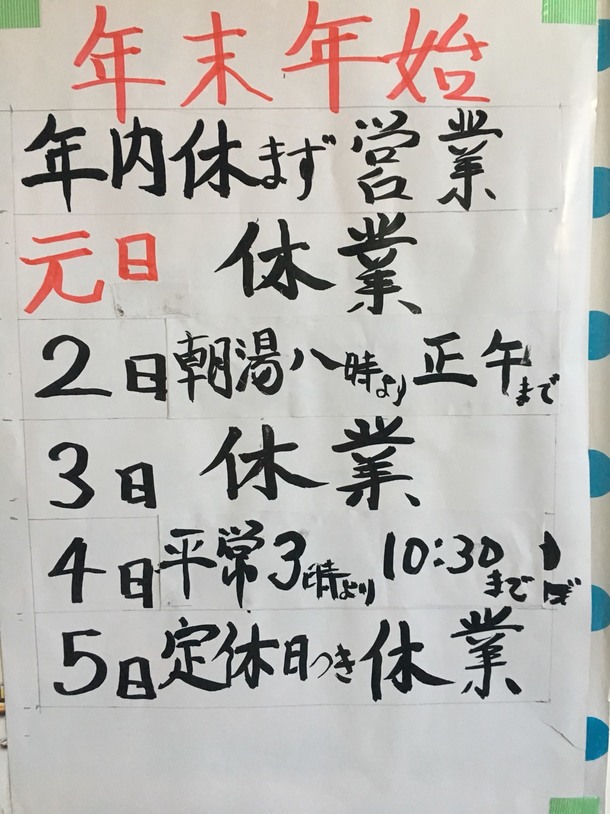 年末年始
年内休まず営業
元日 休業
2日 朝湯八時より正午まで
3日 休業
4日 平常3時より 10:30まで
5日 定休日つき休業